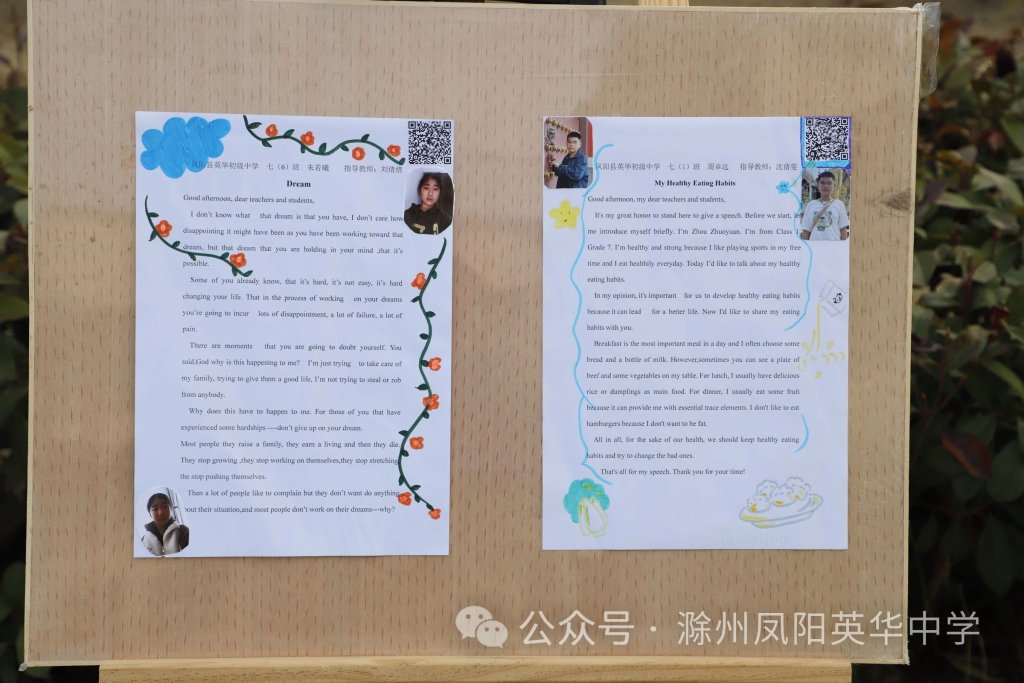 凤阳县英华初级中学 七（6）班 朱若曦 指导教师：刘倩倩
Dream
Good afternoon, dear teachers and students,
I don't know what that dream is that you have, I don't care how
disappointing it might have been as you have been working toward that
dream, but that dream that you are holding in your mind ,that it's
possible.
Some of you already know, that it's hard, it's not easy, it's hard
changing your life. That in the process of working on your dreams
you're going to incur lots of disappointment, a lot of failure, a lot of
pain.
There are moments that you are going to doubt yourself. You
said,God why is this happening to me? I'm just trying to take care of
my family, trying to give them a good life, I'm not trying to steal or rob
from anybody.
Why does this have to happen to me. For those of you that have
experienced some hardships ----don't give up on your dream.
Most people they raise a family, they earn a living and then they die.
They stop growing ,they stop working on themselves,they stop stretching,
the stop pushing themselves.
Then a lot of people like to complain but they don't want do anything
about their situation,and most people don't work on their dreams---why?
凤阳县英华初级中学 七（1）班 周卓远 指导教师：沈倩雯
My Healthy Eating Habits
Good afternoon, my dear teachers and students,
It's my great honor to stand here to give a speech. Before we start, let
me introduce myself briefly. I'm Zhou Zhuoyuan. I'm from Class 1,
Grade 7. I'm healthy and strong because I like playing sports in my free
time and I eat healthily everyday. Today I'd like to talk about my healthy
eating habits.
In my opinion, it's important for us to develop healthy eating habits
because it can lead for a better life. Now I'd like to share my eating
habits with you.
Breakfast is the most important meal in a day and I often choose some
bread and a bottle of milk. However,sometimes you can see a plate of
beef and some vegetables on my table. For lunch, I usually have delicious
rice or dumplings as main food. For dinner, I usually eat some fruit
because it can provide me with essential trace elements. I don't like to eat
hamburgers because I don't want to be fat.
All in all, for the sake of our health, we should keep healthy eating
habits and try to change the bad ones.
That's all for my speech. Thank you for your time!
公众号 · 滁州凤阳英华中学